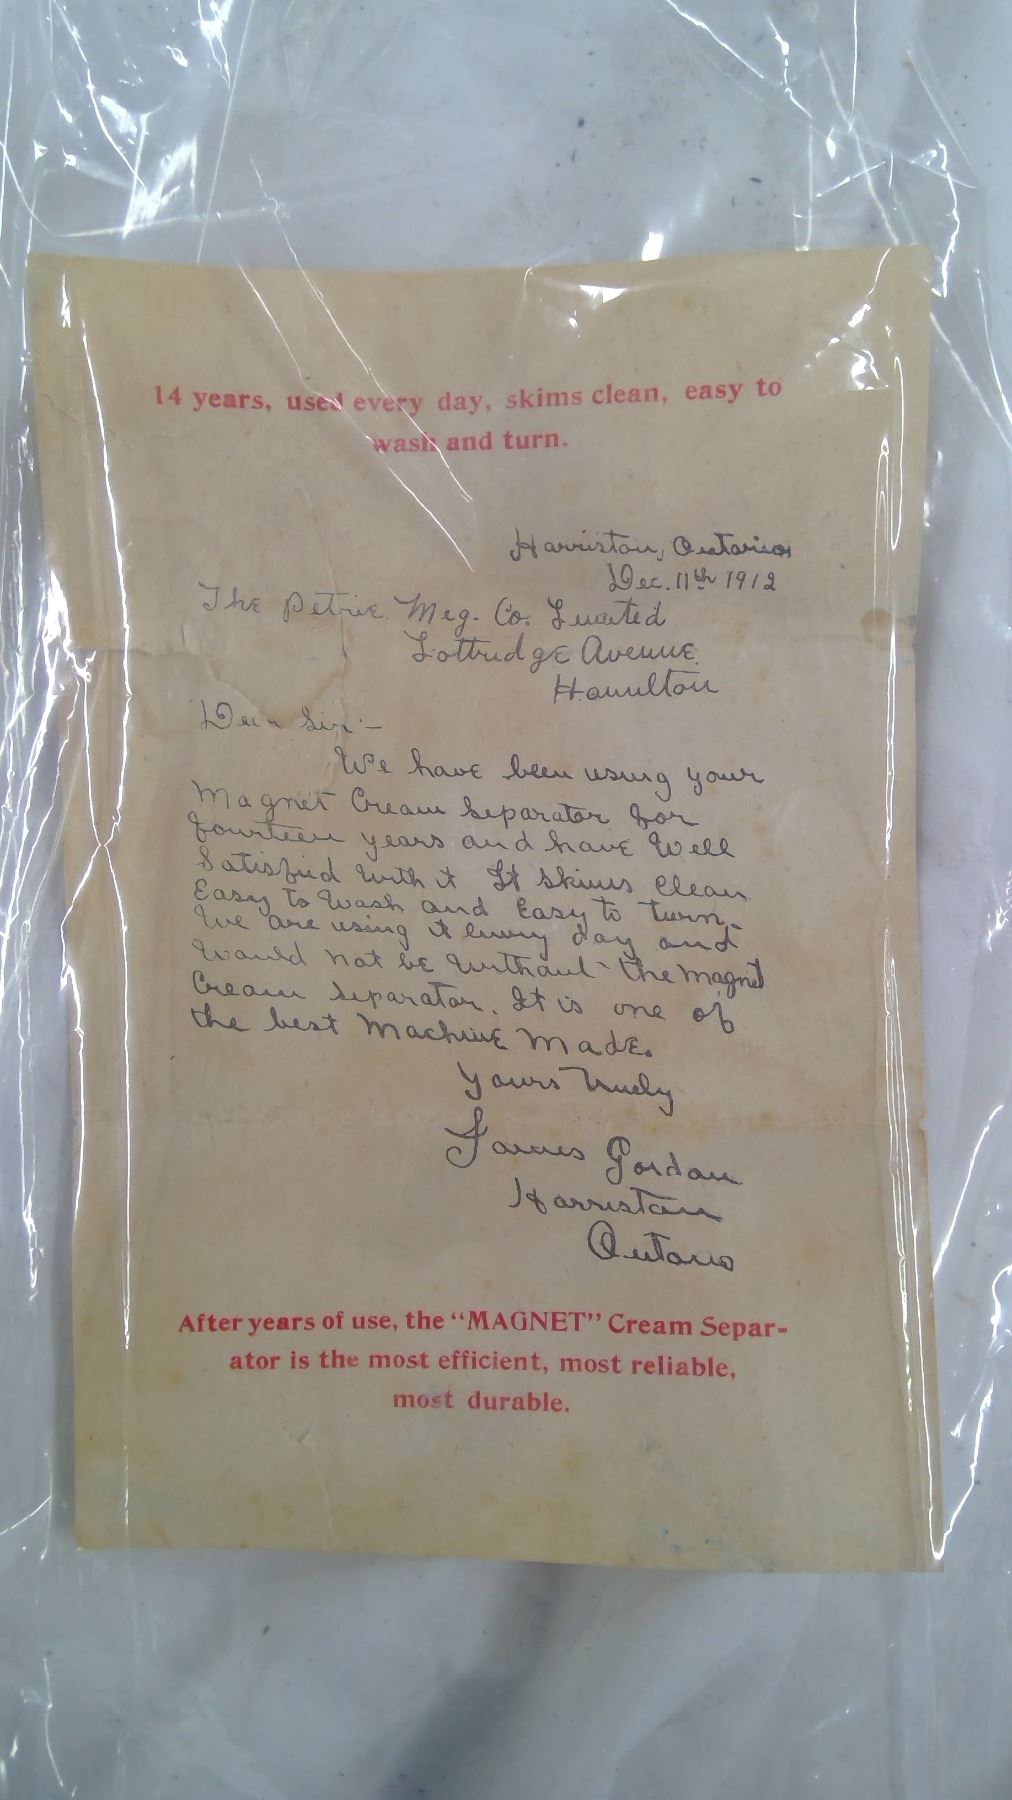 14 years, used every day, skims clean, easy to
wash and turn.
Harriston, Ontario
Dec. 11th 1912
The Petrie Mfg. Co. Limited
Lottridge Avenue
Hamilton
Dear Sir:-
We have been using your
Magnet Cream Separator for
fourteen years and have Well
Satisfied with it It Skims Clean
Easy to Wash and Easy to turn.
We are using it every day and
Would not be Without the Magnet
Cream Separator. It is one of
the best Machine Made.
Yours Truely
James Gordon
Harriston
Ontario
After years of use, the "MAGNET" Cream Separ-
ator is the most efficient, most reliable,
most durable.